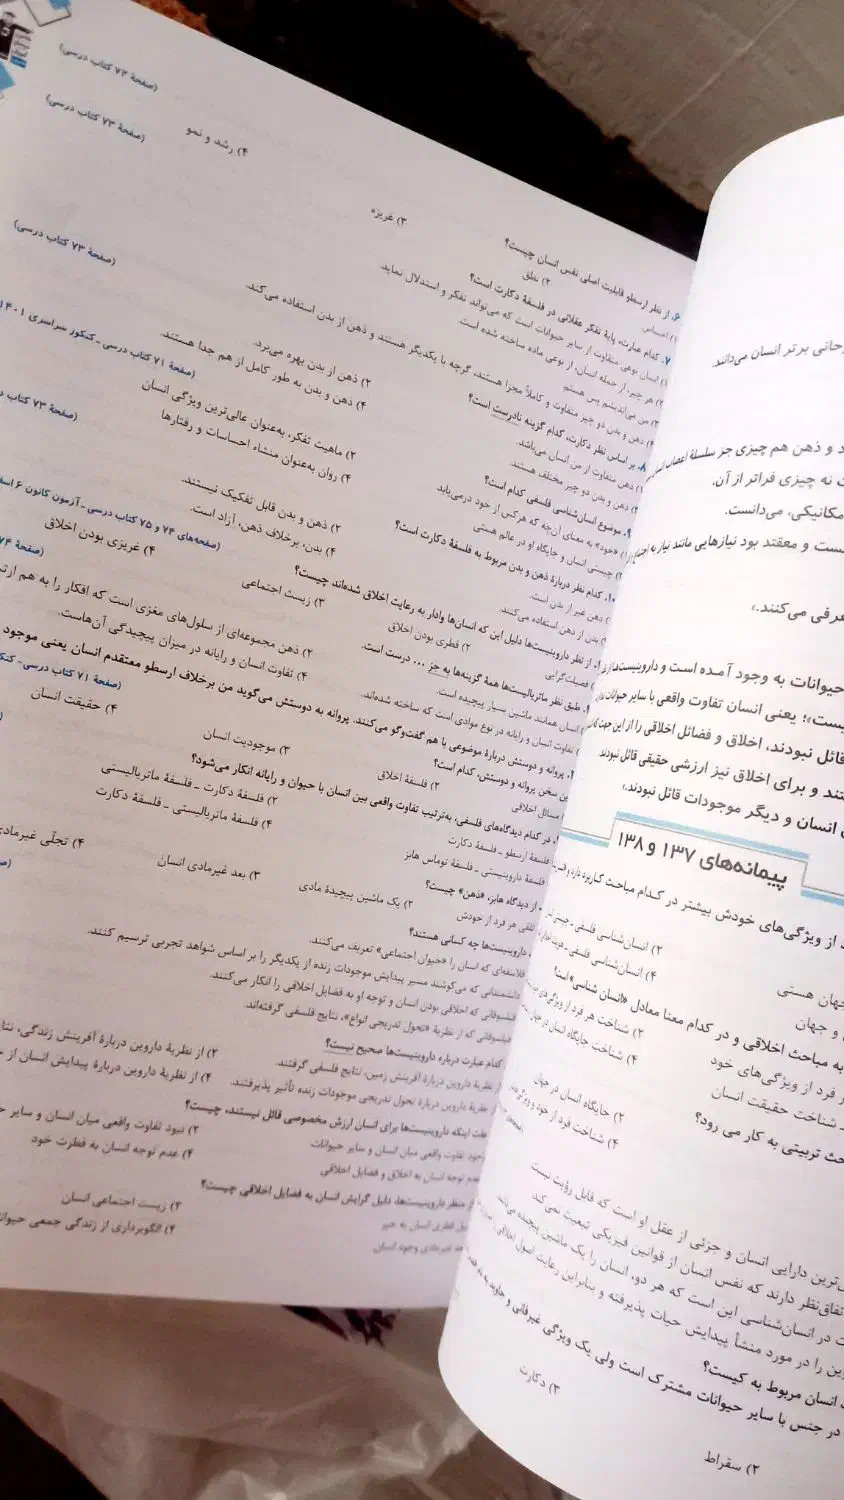 (صفحهٔ ۷۲ کتاب درسی)
(صفحهٔ ۷۳ کتاب درسی)
۶. از نظر ارسطو قابلیت اصلی نفس انسان چیست؟
۱) احساس
۲) نطق
۳) غریزه
۴) رشد و نمو
۷. کدام عبارت، پایهٔ تفکر عقلانی در فلسفهٔ دکارت است؟
۱) انسان نوعی متفاوت از سایر حیوانات است که می‌تواند تفکر و استدلال نماید.
۲) هر چیز، از جمله انسان، از نوعی ماده ساخته شده است.
۳) من می‌اندیشم پس هستم
۴) ذهن و بدن دو چیز متفاوت و کاملاً مجزا هستند، گرچه با یکدیگر هستند و ذهن از بدن استفاده می‌کند.
(صفحهٔ ۷۳ کتاب درسی)
۸. بر اساس نظر دکارت، کدام گزینه نادرست است؟
۱) ذهن متفاوت از من انسان می‌باشد.
۲) ذهن از بدن بهره می‌برد.
ذهن و بدن دو چیز مختلف هستند.
۴) ذهن و بدن به طور کامل از هم جدا هستند.
(صفحهٔ ۷۱ کتاب درسی ـ کنکور سراسری ۱۴۰۱
۹. موضوع انسان‌شناسی فلسفی کدام است؟
۱) «خود» به معنای آن‌چه که هرکس از خود درمی‌یابد
۲) ماهیت تفکر، به‌عنوان عالی‌ترین ویژگی انسان
چیستی انسان و جایگاه او در عالم هستی
۴) روان به‌عنوان منشاء احساسات و رفتارها
(صفحهٔ ۷۳ کتاب در
۱۰. کدام نظر دربارهٔ ذهن و بدن مربوط به فلسفهٔ دکارت است؟
ذهن غیر از بدن است.
۲) ذهن و بدن قابل تفکیک نیستند.
بدن از ذهن استفاده می‌کند.
۴) بدن، برخلاف ذهن، آزاد است.
(صفحه‌های ۷۴ و ۷۵ کتاب درسی ـ آزمون کانون ۶ اسف
از نظر داروینیست‌ها دلیل این که انسان‌ها وادار به رعایت اخلاق شده‌اند چیست؟
فضیلت‌گرایی
۲) فطری بودن اخلاق
۳) زیست اجتماعی
۴) غریزی بودن اخلاق
(صفحهٔ ۷۴
طبق نظر ماتریالیست‌ها همهٔ گزینه‌ها به جز ... درست است.
انسان همانند ماشین بسیار پیچیده است.
۲) ذهن مجموعه‌ای از سلول‌های مغزی است که افکار را به هم ارتب
تفاوت انسان و رایانه در نوع موادی است که ساخته شده‌اند.
۴) تفاوت انسان و رایانه در میزان پیچیدگی آن‌هاست.
پروانه و دوستش دربارهٔ موضوعی با هم گفت‌وگو می‌کنند. پروانه به دوستش می‌گوید من برخلاف ارسطو معتقدم انسان یعنی موجود
این سخن پروانه و دوستش، کدام است؟
(صفحهٔ ۷۱ کتاب درسی- کنک
مسائل اخلاقی
۲) فلسفهٔ اخلاق
۳) موجودیت انسان
۴) حقیقت انسان
در کدام دیدگاه‌های فلسفی، به‌ترتیب تفاوت واقعی بین انسان با حیوان و رایانه انکار می‌شود؟
فلسفهٔ ارسطو ـ فلسفهٔ دکارت
۲) فلسفهٔ دکارت ـ فلسفهٔ ماتریالیستی
فلسفهٔ داروینیستی ـ فلسفهٔ توماس هابز
۴) فلسفهٔ ماتریالیستی ـ فلسفهٔ دکارت
از دیدگاه هابز، «ذهن» چیست؟
تلقی هر فرد از خودش
۲) یک ماشین پیچیدهٔ مادی
۳) بعد غیرمادی انسان
۴) تجلّی غیرمادی
داروینیست‌ها چه کسانی هستند؟
فلاسفه‌ای که انسان را «حیوان اجتماعی» تعریف می‌کنند.
دانشمندانی که می‌کوشند مسیر پیدایش موجودات زنده از یکدیگر را بر اساس شواهد تجربی ترسیم کنند.
فیلسوفانی که اخلاقی بودن انسان و توجه او به فضایل اخلاقی را انکار می‌کنند.
فیلسوفانی که از نظریهٔ «تحول تدریجی انواع»، نتایج فلسفی گرفته‌اند.
کدام عبارت درباره داروینیست‌ها صحیح نیست؟
از نظریهٔ داروین دربارهٔ آفرینش زمین، نتایج فلسفی گرفتند.
۲) از نظریهٔ داروین دربارهٔ آفرینش زندگی، نتای
از نظریهٔ داروین دربارهٔ تحول تدریجی موجودات زنده تأثیر پذیرفتند.
۴) از نظریهٔ داروین دربارهٔ پیدایش انسان از ح
علت اینکه داروینیست‌ها برای انسان ارزش مخصوصی قائل نیستند، چیست؟
وجود تفاوت واقعی میان انسان و سایر حیوانات
۲) نبود تفاوت واقعی میان انسان و سایر ح
عدم توجه انسان به اخلاق و فضایل اخلاقی
۴) عدم توجه انسان به فطرت خود
از منظر داروینیست‌ها، دلیل گرایش انسان به فضایل اخلاقی چیست؟
میل فطری انسان به خیر
۲) زیست اجتماعی انسان
بعد غیرمادی وجود انسان
۴) الگوبرداری از زندگی جمعی حیوانا
وحانی برتر انسان می‌دانند.
د و ذهن هم چیزی جز سلسلهٔ اعصاب انسان
ت نه چیزی فراتر از آن.
مکانیکی، می‌دانست.
ست و معتقد بود نیازهایی مانند نیاز به اجتماع
عرفی می‌کنند.»
حیوانات به وجود آمده است و داروینیست‌ها از نظر
یست»؛ یعنی انسان تفاوت واقعی با سایر حیوانات ندارد
قائل نبودند، اخلاق و فضائل اخلاقی را از این جهت که
تند و برای اخلاق نیز ارزشی حقیقی قائل نبودند.
انسان و دیگر موجودات قائل نبودند.»
پیمانه‌های ۱۳۷ و ۱۳۸
د از ویژگی‌های خودش بیشتر در کدام مباحث کاربرد دارد و
۲) انسان‌شناسی فلسفی ـ چیستی
جهان هستی
۴) انسان‌شناسی فلسفی ـ
و جهان
به مباحث اخلاقی و در کدام معنا معادل «انسان شناسی» است؟
ر فرد از ویژگی‌های خود
۲) شناخت هر فرد از ویژگی‌های
ـ شناخت حقیقت انسان
۴) شناخت جایگاه انسان در جهان
حث تربیتی به کار می رود؟
۲) جایگاه انسان در جهان
۴) شناخت فرد از خود و ویژگی
ی‌ترین دارایی انسان و جزئی از عقل او است که قابل رؤیت نیست
تفاق‌نظر دارند که نفس انسان از قوانین فیزیکی تبعیت نمی‌کند
ت در انسان‌شناسی این است که هر دو، انسان را یک ماشین پیچیده می‌دانند
وین را در مورد منشأ پیدایش حیات پذیرفته و بنابراین رعایت اصول اخلاقی را
انسان مربوط به کیست؟
در جنس با سایر حیوانات مشترک است ولی یک ویژگی غیرفانی و جاوید به نام
۳) دکارت
۲) سقراط